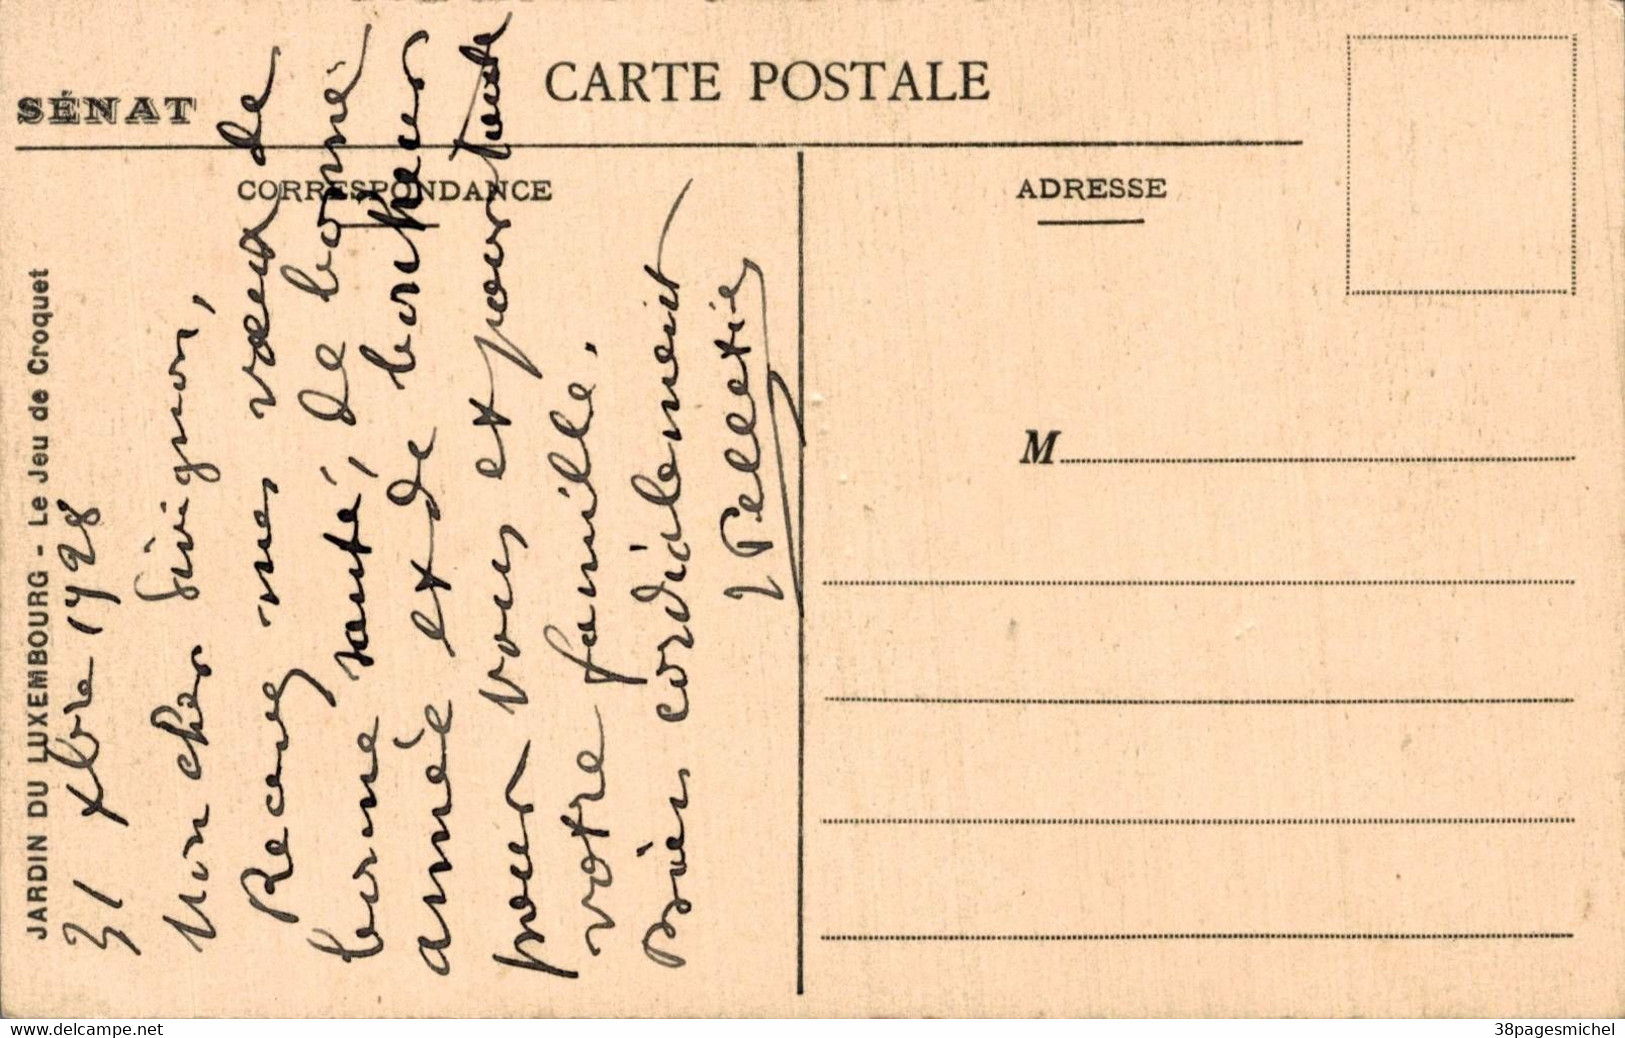 SÉNAT
CARTE POSTALE
CORRESPONDANCE
ADRESSE
M
JARDIN DU LUXEMBOURG - Le Jeu de Croquet
31 Xbre 1928
Mon cher Sivignon,
Recevez mes vœux de
bonne santé, de bonne
année et de bonheur
pour vous et pour toute
votre famille.
Bien cordialement
J Pelletier
www.delcampe.net
38pagesmichel